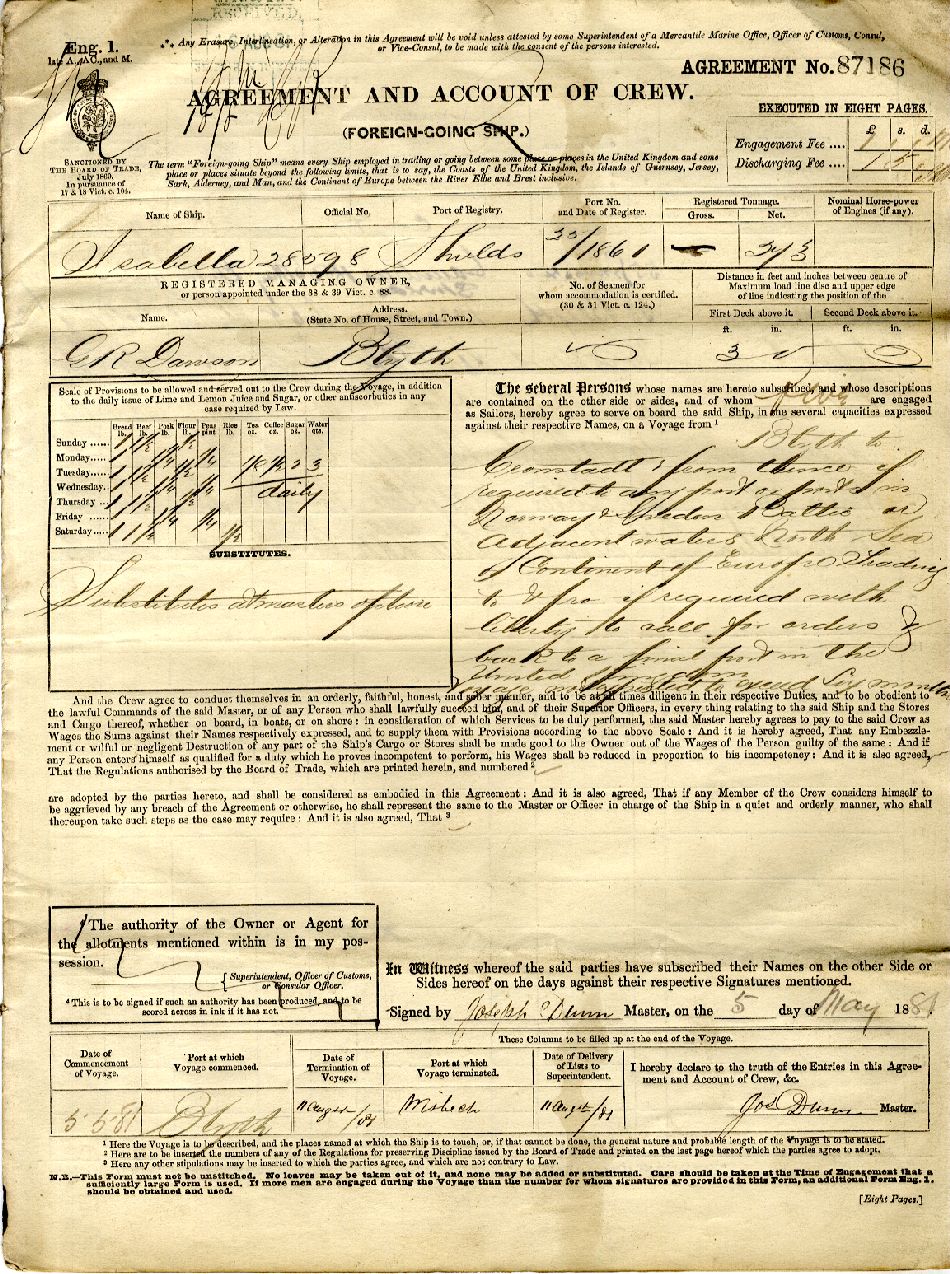 RECEIVED
Eng. 1.
late A., AC., and M.
*** Any Erasure, Interlineation, or Alteration in this Agreement will be void unless attested by some Superintendent of a Mercantile Marine Office, Officer of Customs, Consul,
or Vice-Consul, to be made with the consent of the persons interested.
AGREEMENT No. 87186
AGREEMENT AND ACCOUNT OF CREW.
(FOREIGN-GOING SHIP.)
EXECUTED IN EIGHT PAGES.
£ s. d.
Engagement Fee ....
Discharging Fee ....
SANCTIONED BY
THE BOARD OF TRADE,
July 1869.
In pursuance of
17 & 18 Vict. c. 104.
The term "Foreign-going Ship" means every Ship employed in trading or going between some place or places in the United Kingdom and some
place or places situate beyond the following limits, that is to say, the Coasts of the United Kingdom, the Islands of Guernsey, Jersey,
Sark, Alderney, and Man, and the Continent of Europe between the River Elbe and Brest inclusive.
Name of Ship. Official No. Port of Registry. Port No. and Date of Register. Registered Tonnage. Gross. Net. Nominal Horse-power of Engines (if any).
Isabella 28598 Shields /1861 — 273
REGISTERED MANAGING OWNER,
or person appointed under the 38 & 39 Vict. c. 88.
Name. Address. (State No. of House, Street, and Town.)
No. of Seamen for
whom accommodation is certified.
(30 & 31 Vict. c. 124.)
Distance in feet and inches between centre of
Maximum load line disc and upper edge
of line indicating the position of the
First Deck above it. Second Deck above it.
ft. in. ft. in.
G R Dawson Blyth 3
Scale of Provisions to be allowed and served out to the Crew during the Voyage, in addition
to the daily issue of Lime and Lemon Juice and Sugar, or other antiscorbutics in any
case required by Law.
Bread lb. Beef lb. Pork lb. Flour lb. Peas pint Rice lb. Tea oz. Coffee oz. Sugar oz. Water qts.
Sunday ..... 1 1½ ½
Monday ..... 1 1¼ ⅓
Tuesday ..... 1 1½ ½
Wednesday. 1 1¼ ⅓
daily
Thursday .... 1 1½ ½
Friday ..... 1 1¼ ⅓
Saturday .... 1 1½ ½
SUBSTITUTES.
Substitutes at masters option
The several Persons whose names are hereto subscribed, and whose descriptions
are contained on the other side or sides, and of whom five are engaged
as Sailors, hereby agree to serve on board the said Ship, in the several capacities expressed
against their respective Names, on a Voyage from ¹
Blyth to
Cronstadt & from thence if
required to any port or ports in
Norway & Sweden & Baltic or
Adjacent waters North Sea
& Continent of Europe Trading
to & fro if required with
liberty to call for orders &
back to a final port in the
United Kingdom
And the Crew agree to conduct themselves in an orderly, faithful, honest, and sober manner, and to be at all times diligent in their respective Duties, and to be obedient to
the lawful Commands of the said Master, or of any Person who shall lawfully succeed him, and of their Superior Officers, in every thing relating to the said Ship and the Stores
and Cargo thereof, whether on board, in boats, or on shore : in consideration of which Services to be duly performed, the said Master hereby agrees to pay to the said Crew as
Wages the Sums against their Names respectively expressed, and to supply them with Provisions according to the above Scale : And it is hereby agreed, That any Embezzle-
ment or wilful or negligent Destruction of any part of the Ship's Cargo or Stores shall be made good to the Owner out of the Wages of the Person guilty of the same : And if
any Person enters himself as qualified for a duty which he proves incompetent to perform, his Wages shall be reduced in proportion to his incompetency : And it is also agreed,
That the Regulations authorised by the Board of Trade, which are printed herein, and numbered ²
are adopted by the parties hereto, and shall be considered as embodied in this Agreement : And it is also agreed, That if any Member of the Crew considers himself to
be aggrieved by any breach of the Agreement or otherwise, he shall represent the same to the Master or Officer in charge of the Ship in a quiet and orderly manner, who shall
thereupon take such steps as the case may require : And it is also agreed, That ³
The authority of the Owner or Agent for
the allotments mentioned within is in my pos-
session.
{ Superintendent, Officer of Customs,
or Consular Officer.
⁴ This is to be signed if such an authority has been produced, and to be
scored across in ink if it has not.
In Witness whereof the said parties have subscribed their Names on the other Side or
Sides hereof on the days against their respective Signatures mentioned.
Signed by Joseph Dunn Master, on the 5 day of May 1881
These Columns to be filled up at the end of the Voyage.
Date of Commencement of Voyage. Port at which Voyage commenced. Date of Termination of Voyage. Port at which Voyage terminated. Date of Delivery of Lists to Superintendent.
I hereby declare to the truth of the Entries in this Agree-
ment and Account of Crew, &c.
5.5.81 Blyth 11 August/81 Wisbech 11 August/81 Jos Dunn Master.
¹ Here the Voyage is to be described, and the places named at which the Ship is to touch, or, if that cannot be done, the general nature and probable length of the Voyage is to be stated.
² Here are to be inserted the numbers of any of the Regulations for preserving Discipline issued by the Board of Trade and printed on the last page hereof which the parties agree to adopt.
³ Here any other stipulations may be inserted to which the parties agree, and which are not contrary to Law.
N.B.—This Form must not be unstitched. No leaves may be taken out of it, and none may be added or substituted. Care should be taken at the Time of Engagement that a
sufficiently large Form is used. If more men are engaged during the Voyage than the number for whom signatures are provided in this Form, an additional Form Eng. 1.
should be obtained and used.
[Eight Pages.]